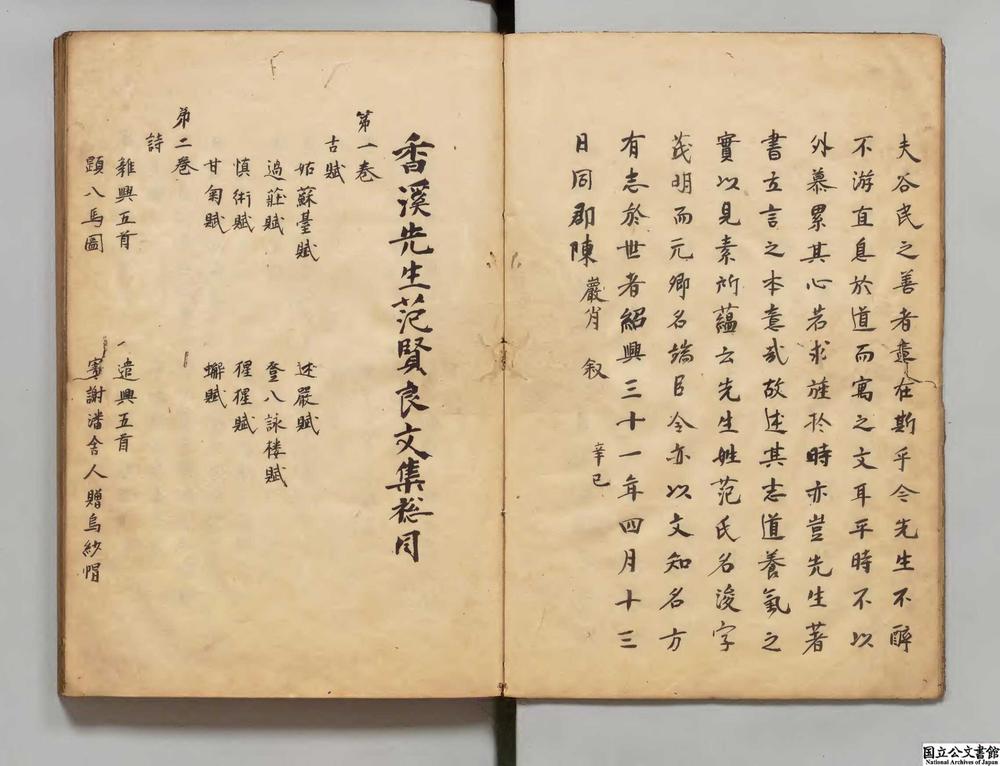 夫谷民之善者意在斯乎今先生不醉
不游直息於道而寓之文耳平時不以
外慕累其心若求雄於時亦豈先生著
書立言之本意哉故述其志道養氣之
實以見素所蘊云先生姓范氏名浚字
茂明而元卿名端臣今亦以文知名方
有志於世者紹興三十一年四月十三
辛已
日同郡陳巖肖叙
香溪先生范賢良文集総目
第一巻
古賦
姑蘇臺賦 述嚴賦
過莊賦 登八詠楼賦
慎術賦 猩猩賦
甘菊賦 蠏賦
弟二巻
詩
雜興五首 遣興五首
題八馬圖 寄謝潘舍人贈烏紗帽
国立公文書館
National Archives of Japan